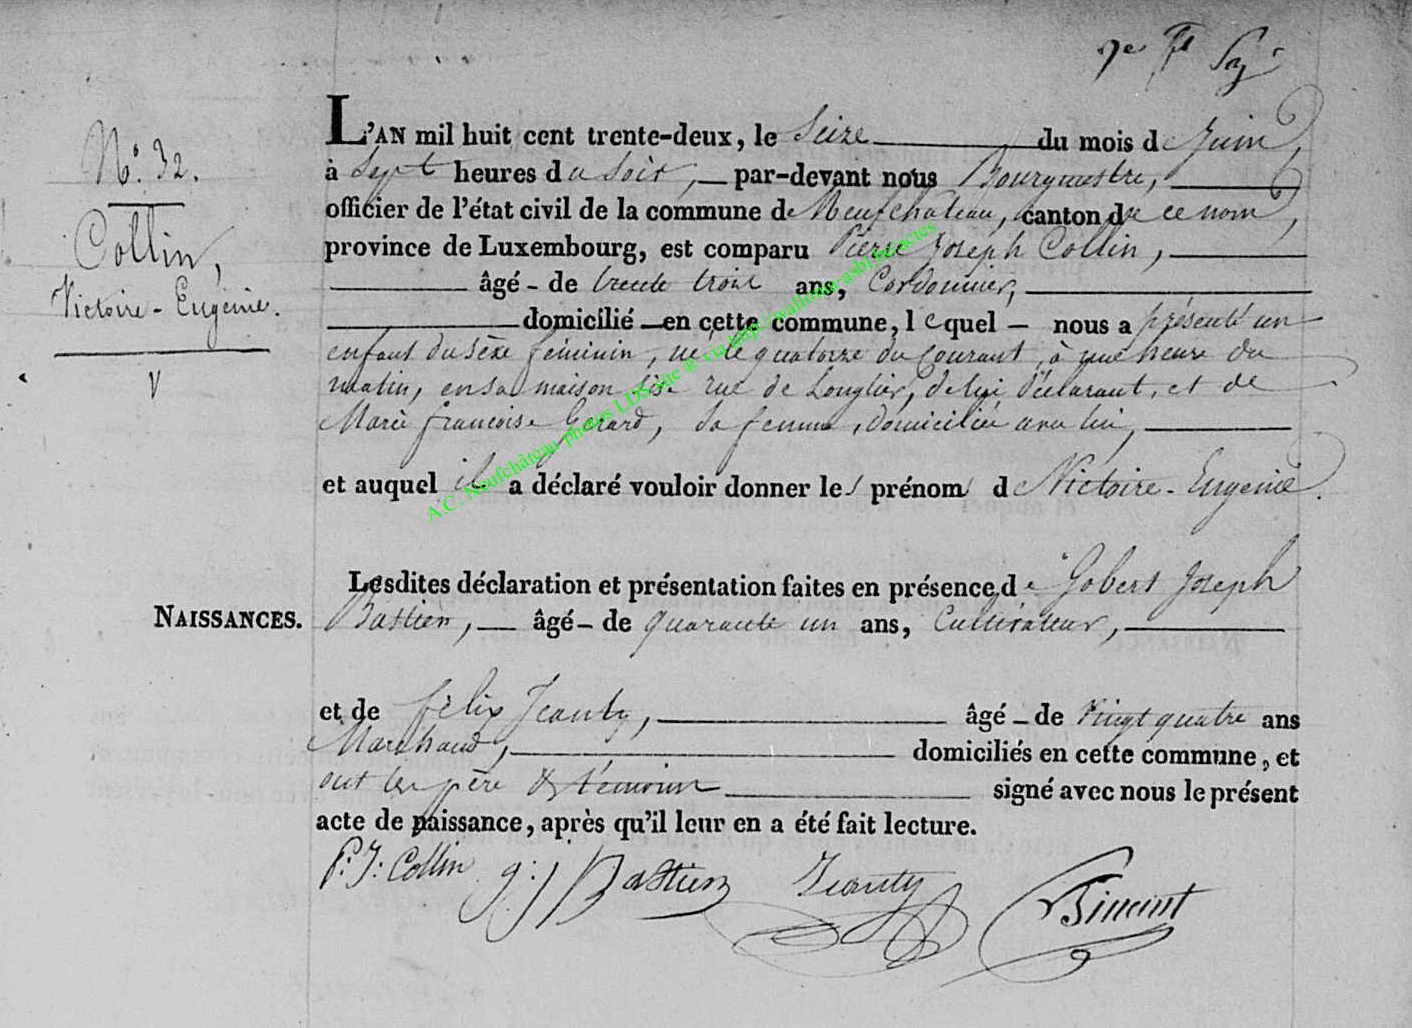 7e
N.° 32.
Collin,
Victoire - Eugénie.
V
NAISSANCES.
L'AN mil huit cent trente-deux, le Seize du mois de Juin,
à Sept heures du Soir, par-devant nous Bourgmestre,
officier de l'état civil de la commune de Neufchateau, canton de ce nom,
province de Luxembourg, est comparu Pierre Joseph Collin,
âgé de trente trois ans, Cordonnier,
domicilié en cette commune, lequel nous a présenté un
enfant du sèxe féminin, né le quatorze du Courant, à une heure du
matin, en sa maison Sise rue de Longlier, de lui déclarant, et de
Marie françoise Gerard, Sa femme, domiciliée avec lui,
et auquel il a déclaré vouloir donner les prénoms de Victoire - Eugénie.
Lesdites déclaration et présentation faites en présence de Gobert Joseph
Bastien, âgé de quarante un ans, Cultivateur,
et de félix Jeanty, âgé de Vingt quatre ans
Marchand, domiciliés en cette commune, et
ont les père & témoins signé avec nous le présent
acte de naissance, après qu'il leur en a été fait lecture.
P. J. Collin g: j Bastien Jeanty
A.C. Neufchâteau photos LDS site ® via http://wallonia-asbl.be/actes